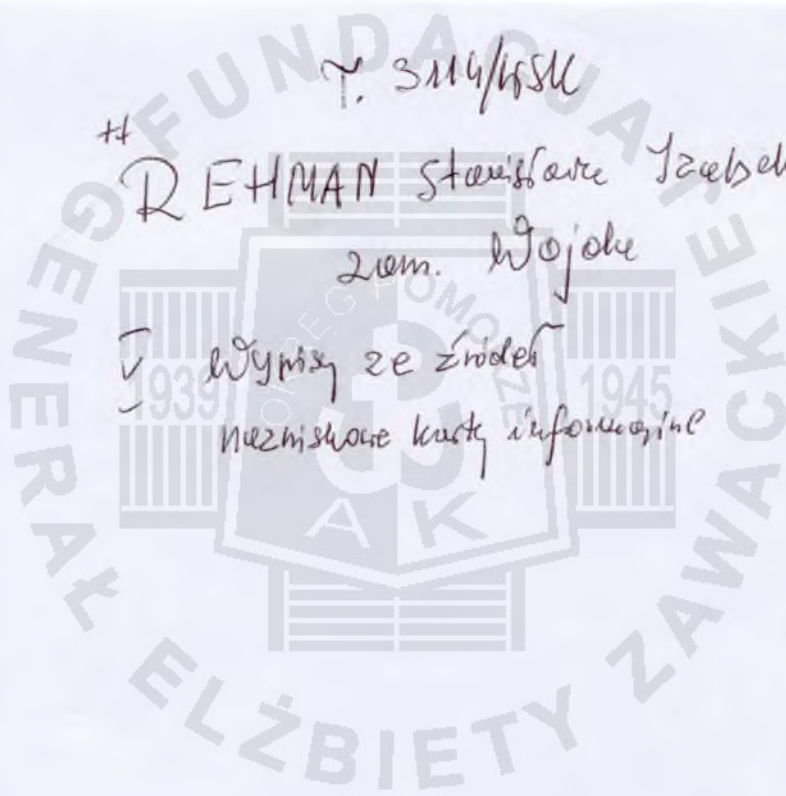 T. 3114/WSK
++
REHMAN Stanisława Izabel
zam. Wojdu
V Wypisy ze źródeł
nazwiskowe karty informacyjne
FUNDACJA GENERAŁ ELŻBIETY ZAWACKIEJ
OKRĘG POMORZE
1939 1945
AK